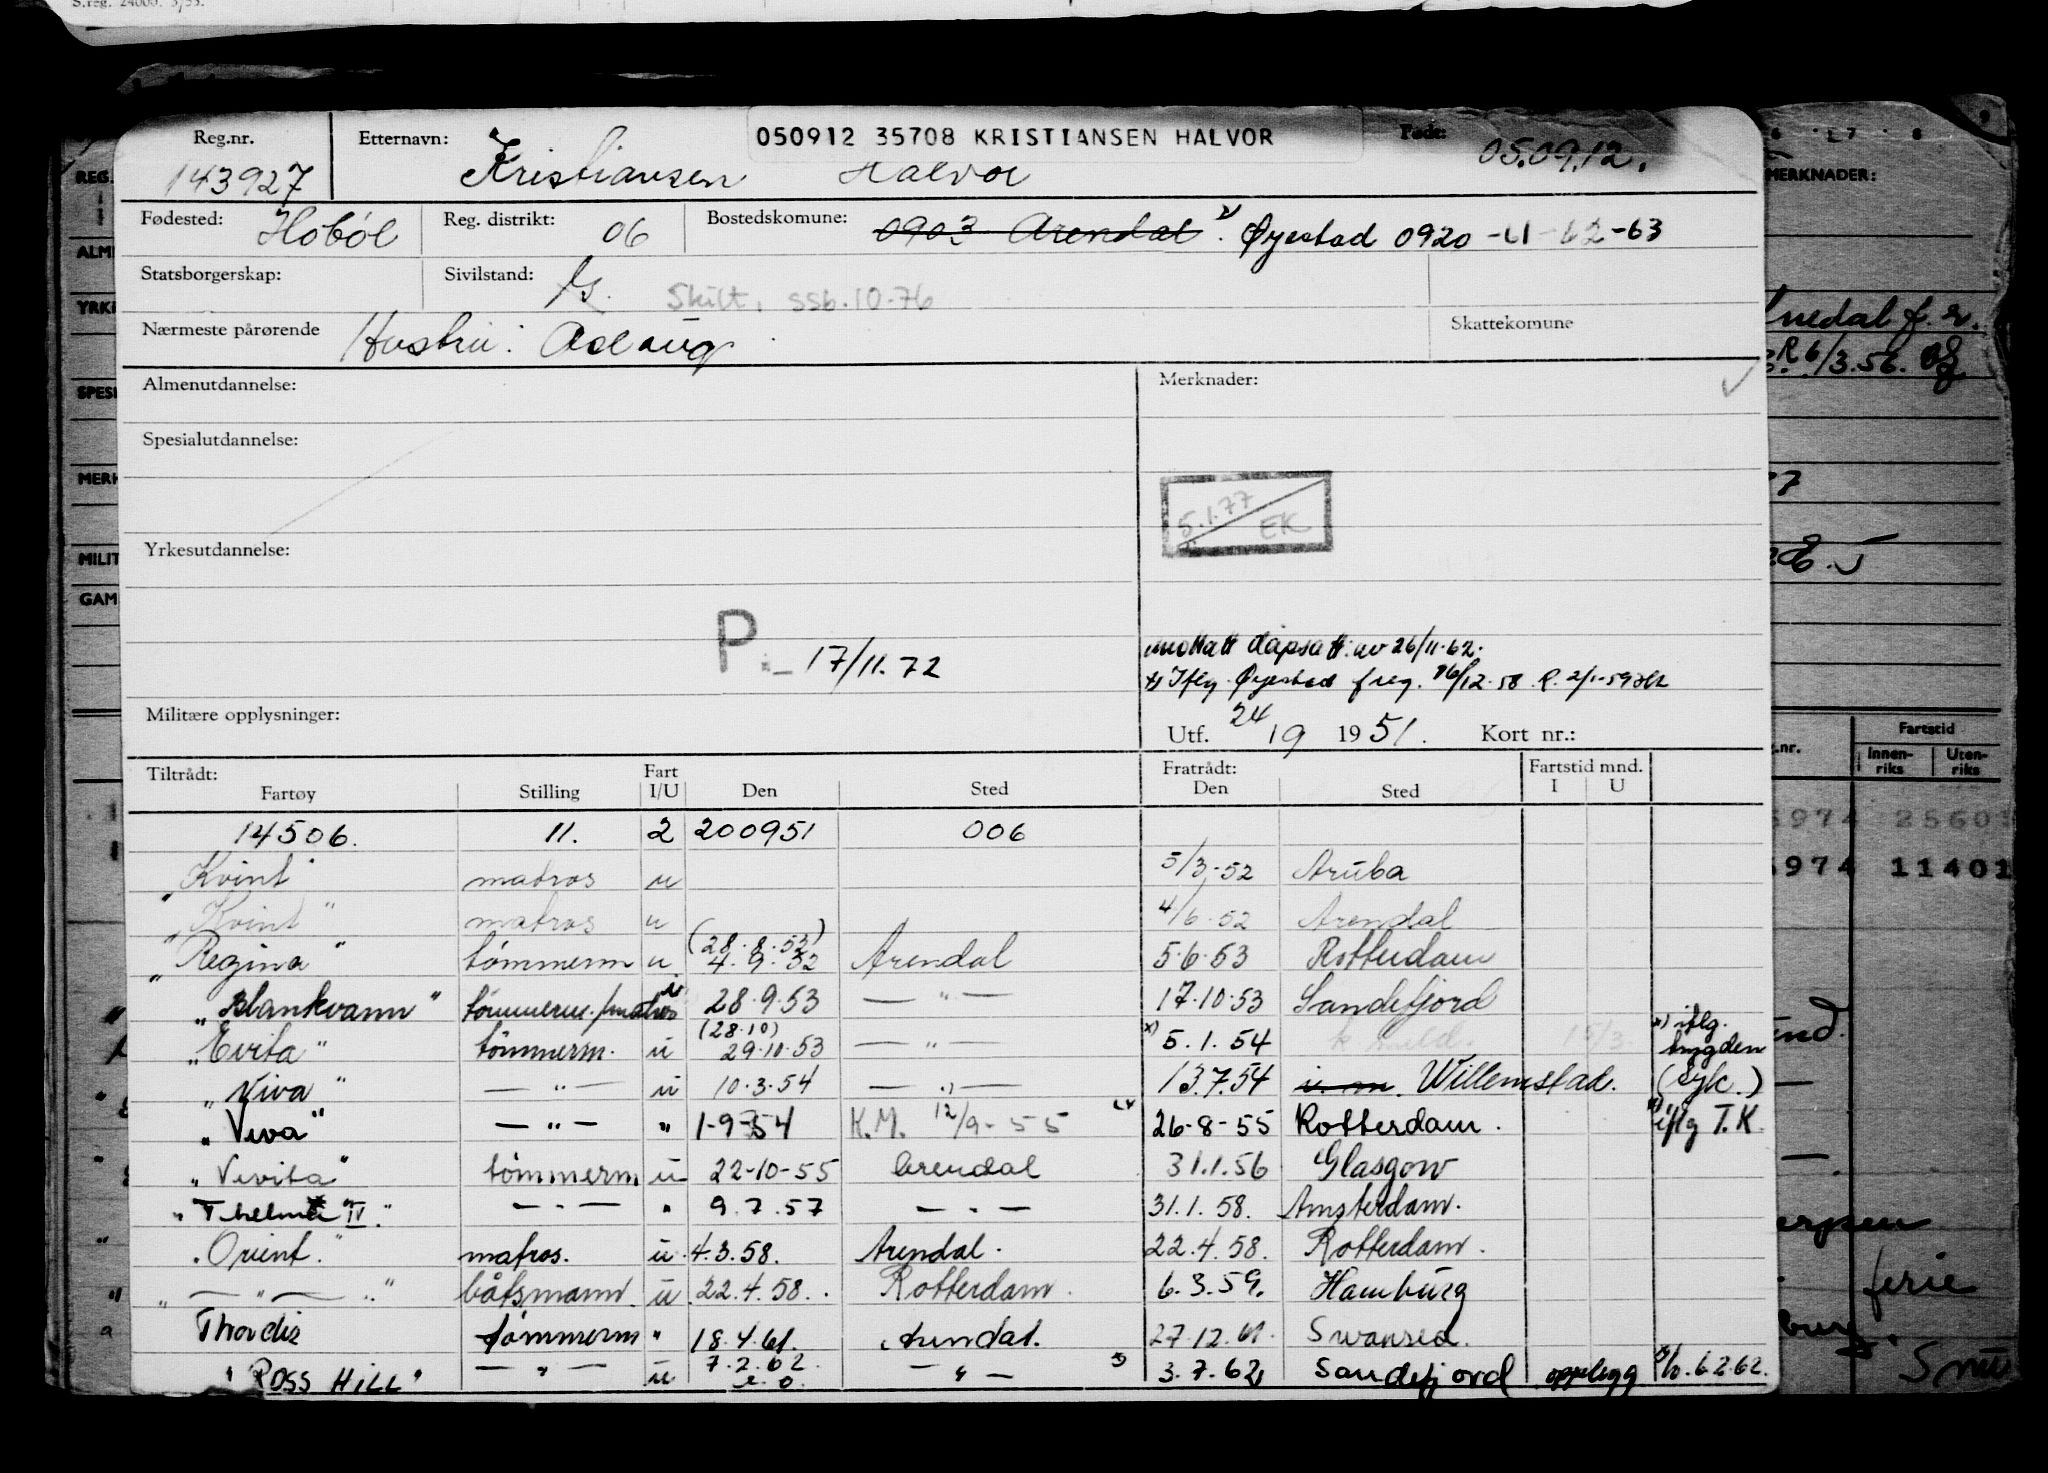 S.reg. 24000. 3/53.
Reg.nr. Etternavn: 050912 35708 KRISTIANSEN HALVOR Født:
143927 Kristiansen Halvor 05.09.12.
Fødested: Hobøl Reg. distrikt: 06 Bostedskomune: 0903 Arendal Øyestad 0920 -61-62-63
Statsborgerskap: Sivilstand: G. Skilt, SSB.10.76
Nærmeste pårørende Hustru: Aslaug Skattekomune
Almenutdannelse: Merknader:
Spesialutdannelse:
5.1.77 EK
Yrkesutdannelse:
P. - 17/11.72
mottatt dapsatt. av 26/11.62.
x) Iflg. Øyestad freg. 16/12.58. R. 2/1-59
Militære opplysninger:
Utf. 24/9 1951. Kort nr.:
Tiltrådt: Fart Fratrådt: Fartstid mnd.
Fartøy Stilling I/U Den Sted Den Sted I U
14506. 11. 2 200951 006
"Kvint" matros u 5/3-52 Aruba
"Kvint" matros u 4/6.52 Arendal
"Regina" tømmerm u (28.8.52) 4.9.52 Arendal 5.6.53 Rotterdam
"Blankvann" tømmerm./matros u 28.9.53 — " — 17.10.53 Sandefjord
"Evita" tømmerm. u (28.10) 29.10.53 — " — x) 5.1.54 x) iflg. trygden
"Viva" — " — u 10.3.54 — " — 13.7.54 Willemstad. (syk.)
"Viva" — " — " 1-9-54 K.M. 12/9-55 26-8-55 Rotterdam. iflg T.K.
"Vivita" tømmerm u 22-10-55 Arendal 31.1.56 Glasgow
"Thelma IV." — " — " 9.7.57 — " — 31.1.58. Amsterdam.
"Orient." matros. u. 4.3.58. Arendal. 22.4.58. Rotterdam.
" — " — " båtsmann u. 22.4.58. Rotterdam. 6.3.59. Hamburg
Thordis tømmerm " 18.4.61. Arendal. 27.12.61. Swansea.
"ROSS HILL" — " — u 7.2.62. — " — 3.7.62 Sandefjord opplegg 6.2.62.
MERKNADER:
R 6/3.56.
Fartstid
Innenriks Utenriks
5974 2560
5974 11401
ferie